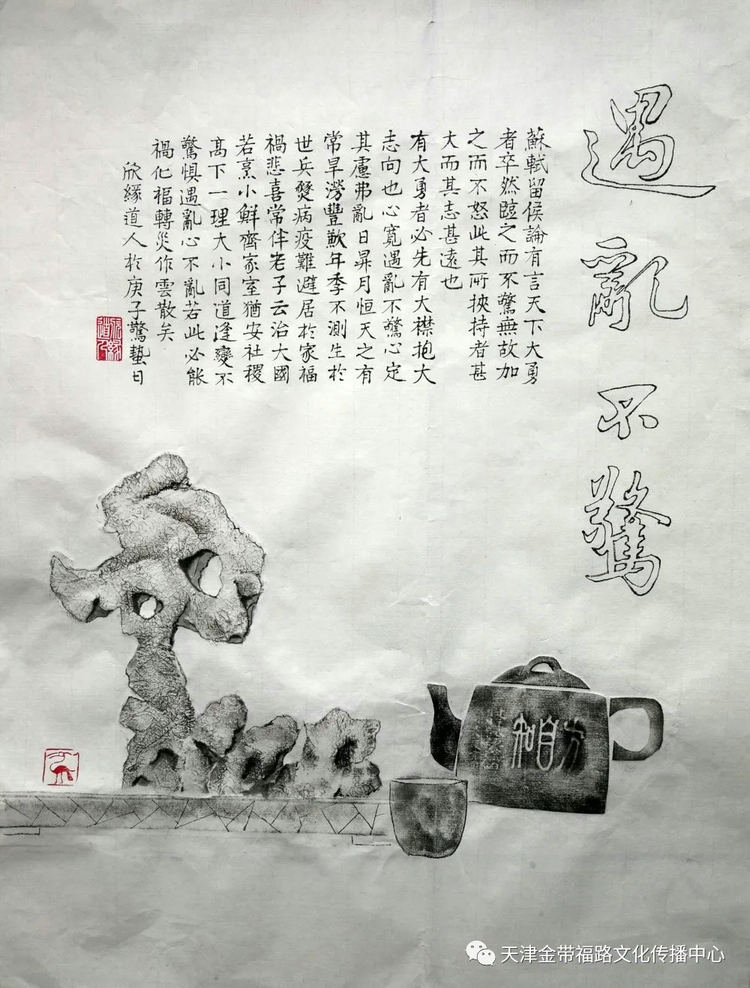 遇亂不驚
蘇軾留侯論有言天下大勇
者卒然臨之而不驚無故加
之而不怒此其所挾持者甚
大而其志甚遠也
有大勇者必先有大襟抱大
志向也心寬遇亂不驚心定
其慮弗亂日昇月恒天之有
常旱澇豐歉年季不測生於
世兵燹病疫難避居於家福
禍悲喜常伴老子云治大國
若烹小鮮齊家室猶安社稷
高下一理大小同道逢變不
驚懼遇亂心不亂若此必能
禍化福轉災作雲散矣
欣緣道人於庚子驚蟄日
天津金带福路文化传播中心